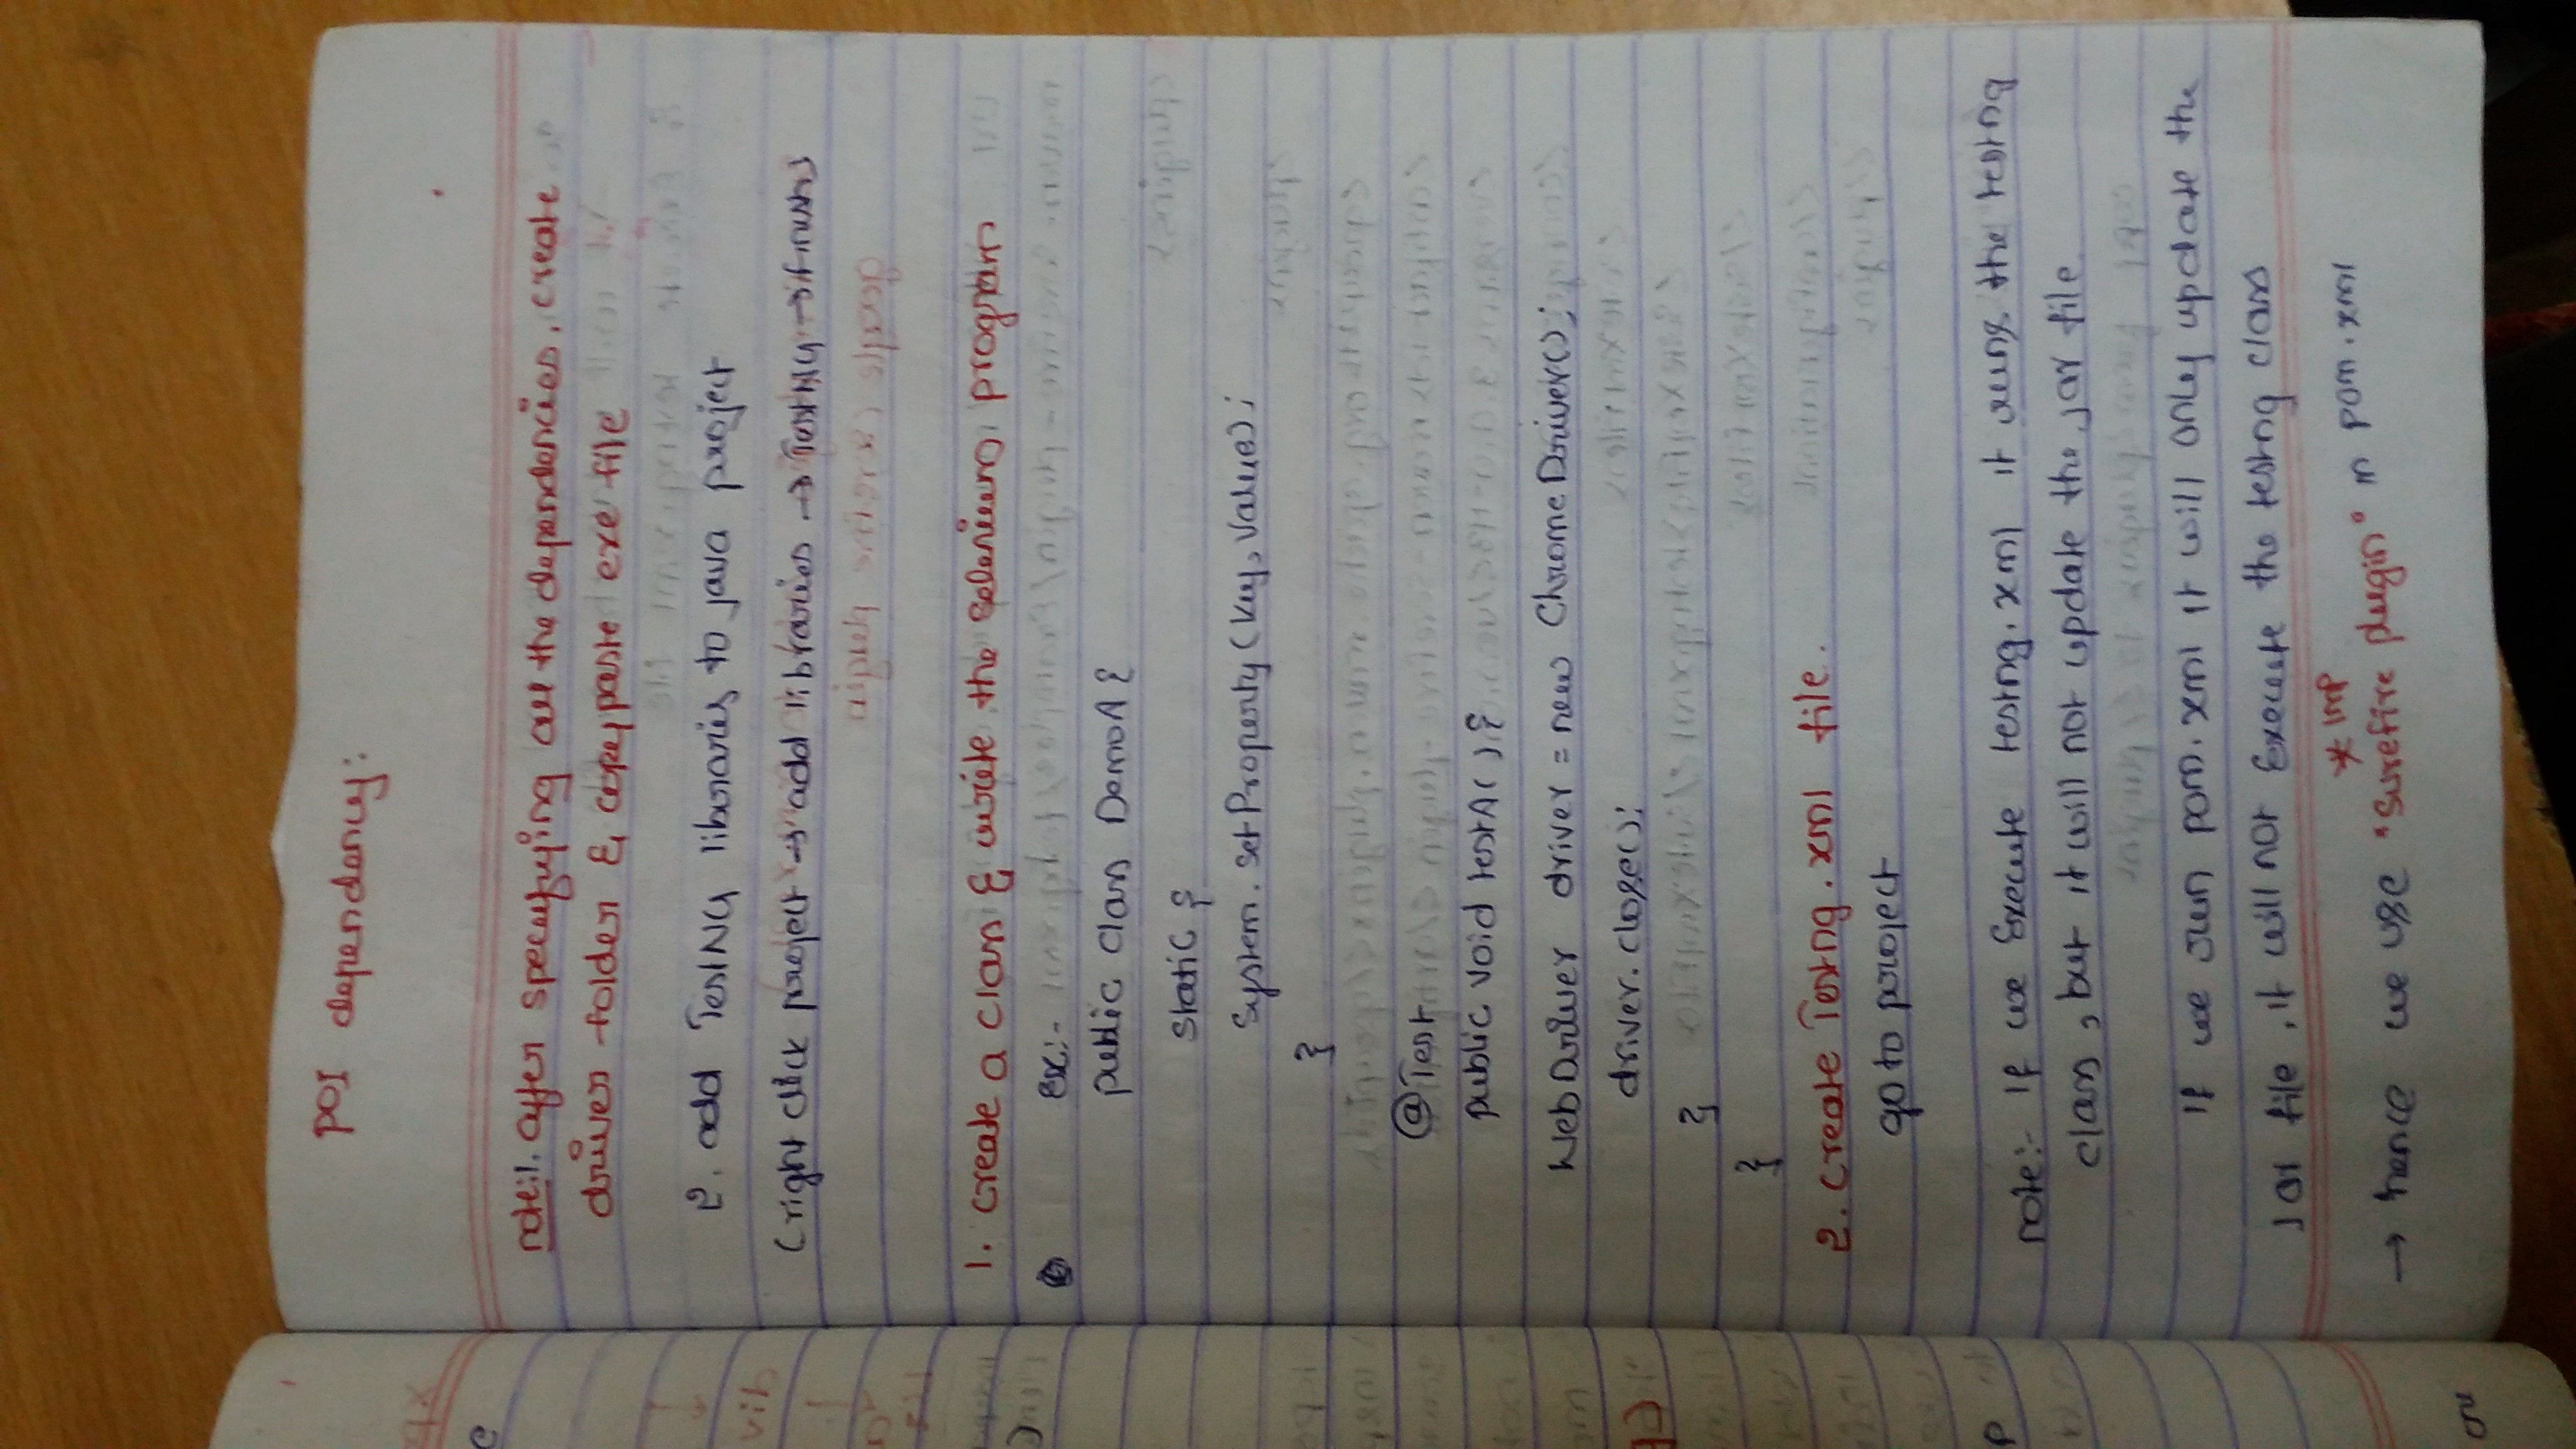 POI dependency:
note:1. After specifying all the dependencies, create
driver folder & copy paste exe file
2. add TestNG libraries to java project
(right click project → add libraries → TestNG → finish)
1. create a class & write the selenium program
ex:-
public class DemoA {
static {
System.setProperty(key, value);
}
@Test
public void testA() {
WebDriver driver = new ChromeDriver();
driver.close();
}
}
2. create Testng.xml file.
go to project
note:- If we Execute testng.xml it runs the testng
class, but it will not update the jar file.
If we run pom.xml it will only update the
jar file, it will not Execute the testng class
* IMP
→ hence we use "Surefire plugin" in pom.xml